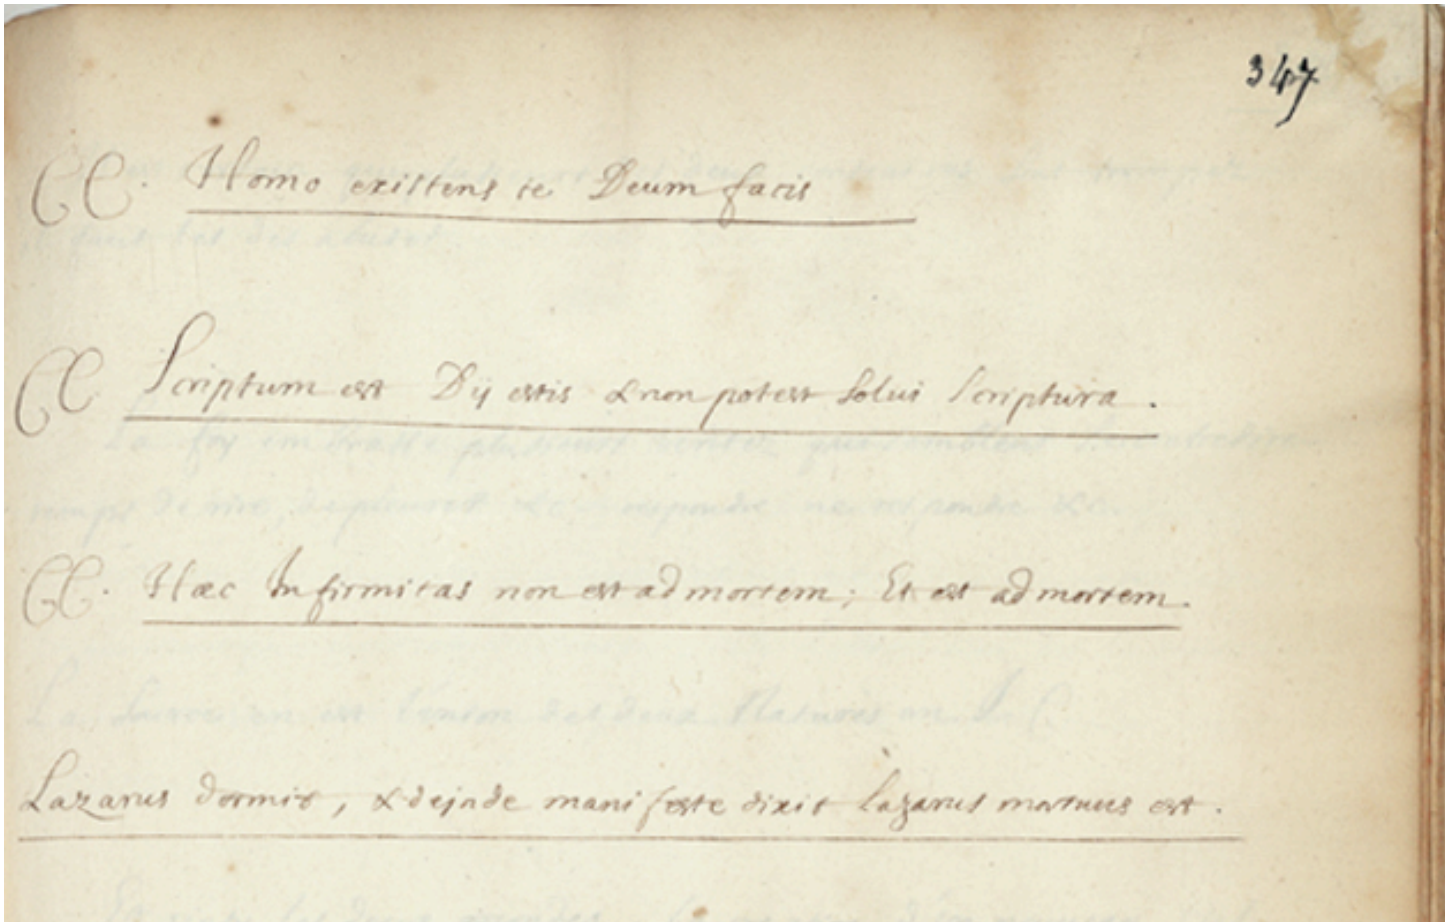 347
CC. Homo existens te Deum facis
CC. Scriptum est Dij estis & non potest solui Scriptura.
CC. Hæc Infirmitas non est ad mortem; Et est ad mortem.
Lazarus dormit, & dejnde manifeste dixit lazarus mortuus est.